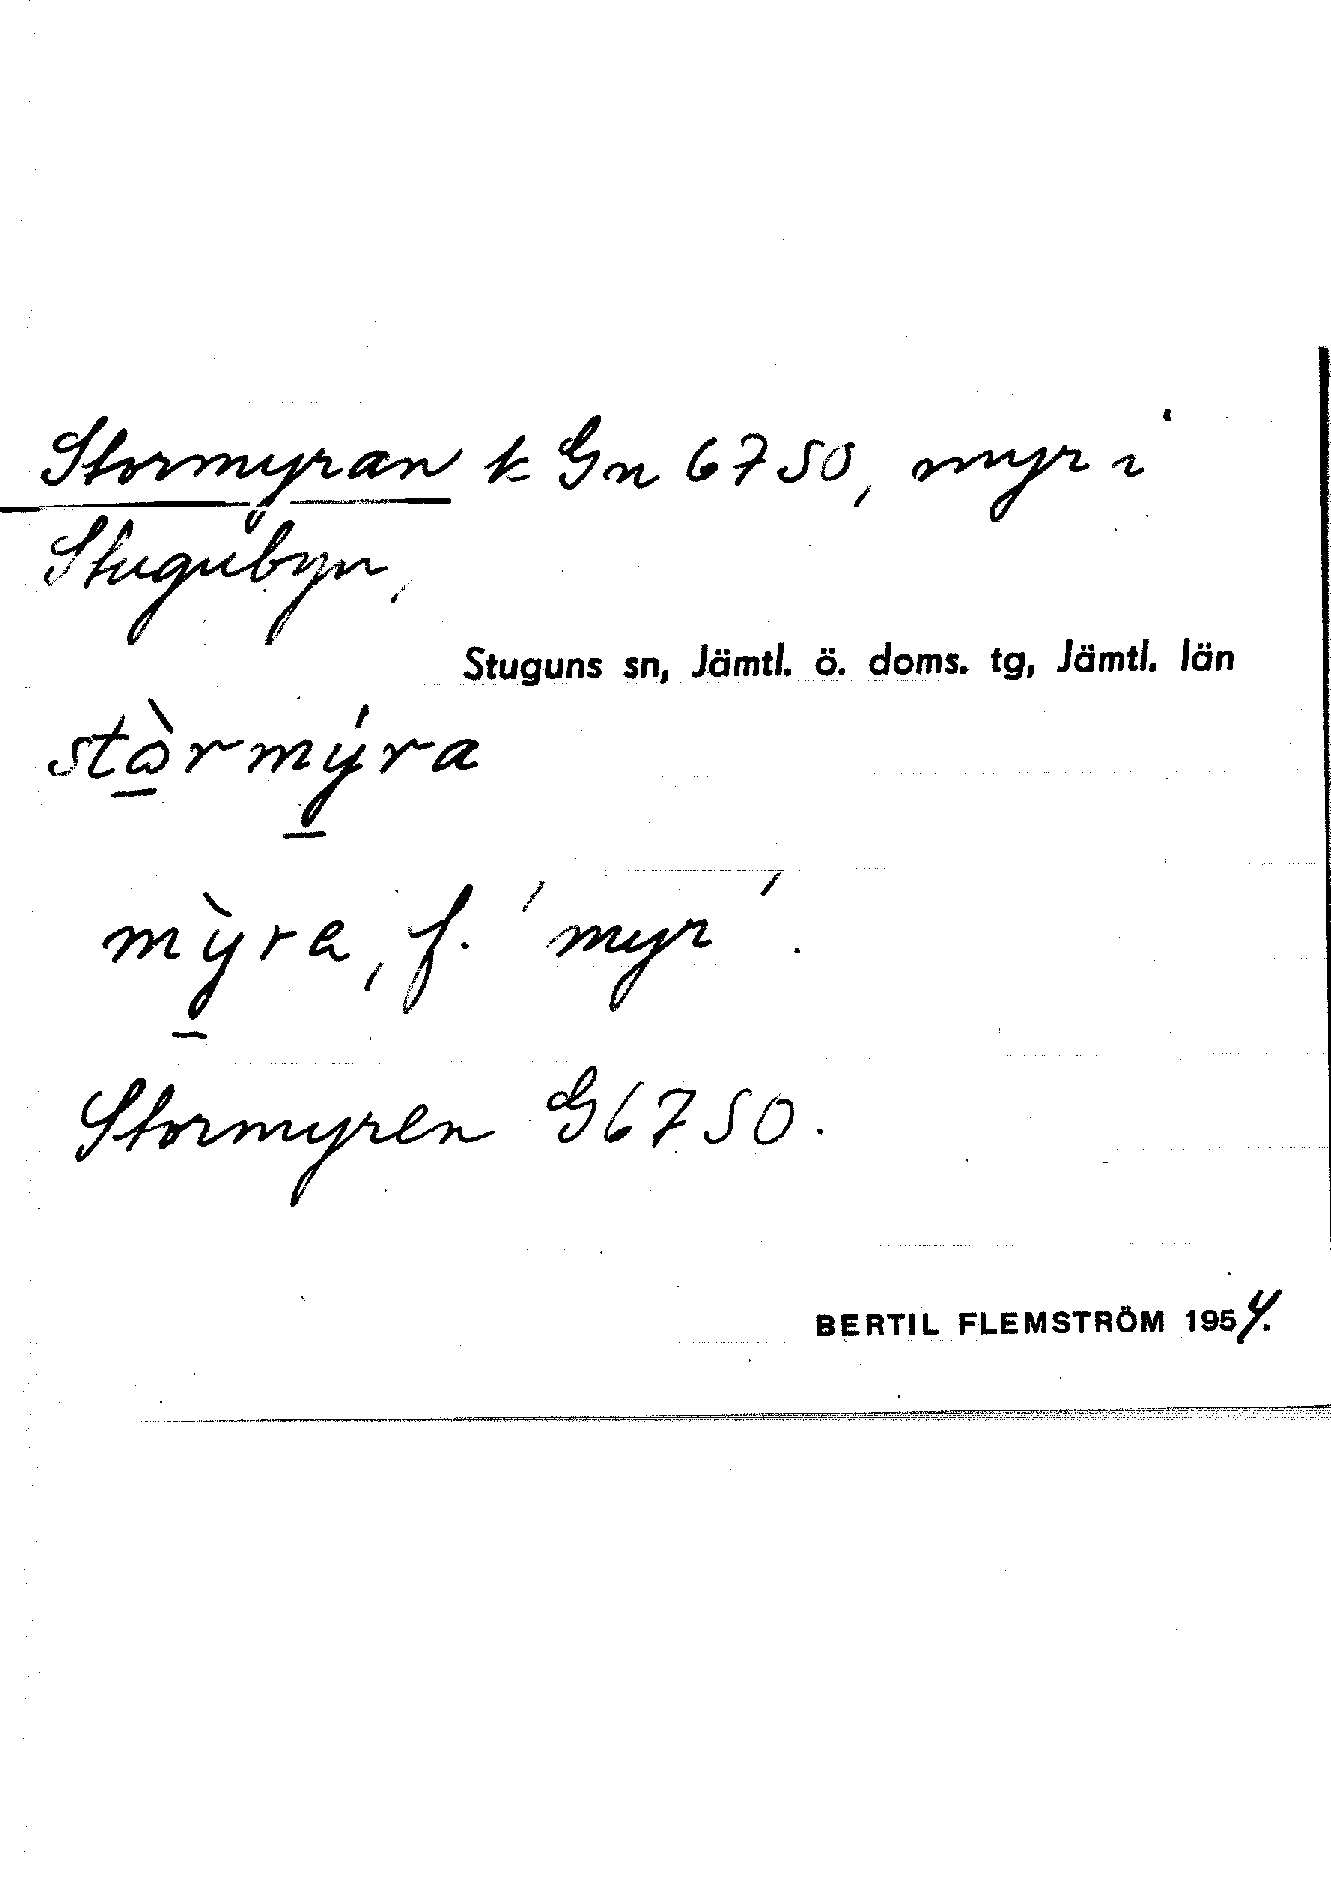 Stormyran k Gn 6750, myr i
Stugubyn,
Stuguns sn, Jämtl. ö. doms. tg, Jämtl. län
stὼrmýra
mỳra, f. 'myr'.
Stormyren G6750.
BERTIL FLEMSTRÖM 1954.